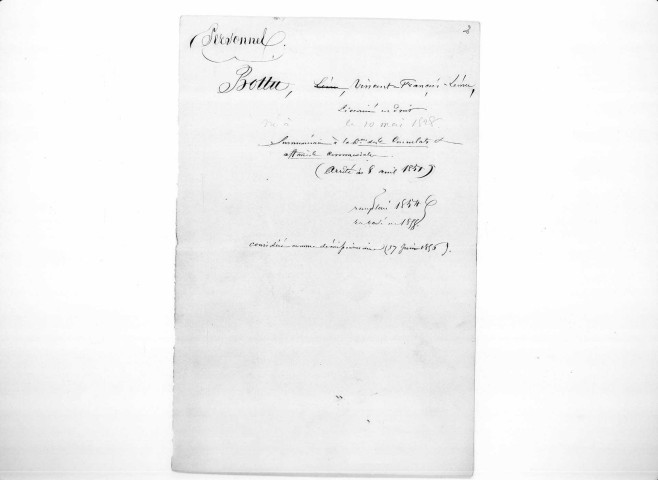 2
Personnel.
Bottu, Léon, Vincent-François-Léon,
licencié en droit
né à le 10 mai 1828
Surnuméraire à la don des Consulats et
affaires commerciales.
(Arrêté du 8 avril 1851)
1854
en 1855
considéré comme démissionnaire (17 juin 1856).